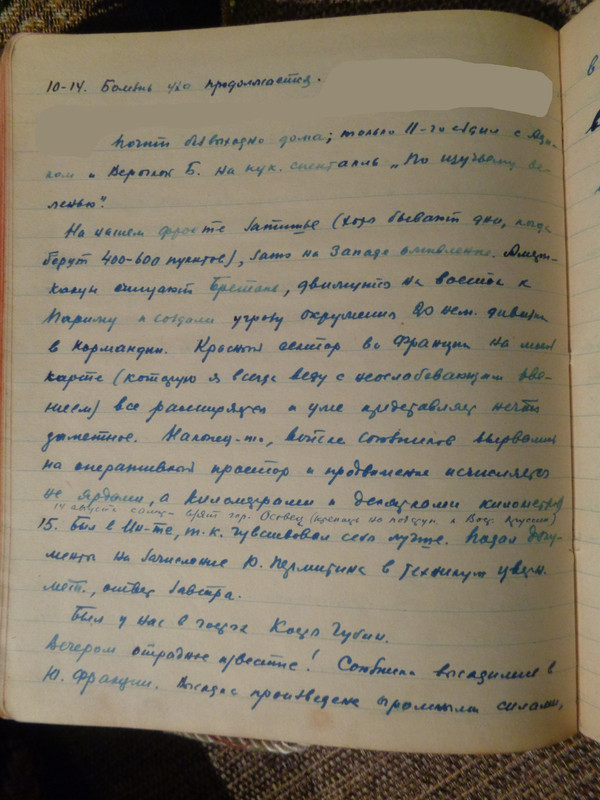 10-14. Болезнь продолжается.
Почти безвыходно дома; только 11-го ездил с
и Верочкой Б. на кук. спектакль „По щучьему ве-
ленью".
На нашем фронте затишье (хотя бывают дни, когда
берут 400-600 пунктов), зато на Западе оживление. Амери-
канцы очищают Бретань, двинулись на восток к
Парижу и создали угрозу окружения 20 нем. дивизий
в Нормандии. Красный сектор во Франции на моей
карте (которую я всегда веду с неослабевающим рве-
нием) все расширяется и уже представляет нечто
заметное. Наконец-то, войска союзников вырвались
на оперативный простор и продвижение исчисляется
не ярдами, а километрами и десятками километров
14 августа взят гор. Осовец (крепость на подступ. к Вост. Пруссии)
15. Был в Ин-те, т.к. чувствовал себя лучше. Подал доку-
менты на зачисление Ю. Пермитина в техникум цветн.
мет., ответ завтра.
Был у нас в гостях Костя Чубин.
Вечером отрадное известие! Союзники высадились в
Ю. Франции. Высадка произведена огромными силами,